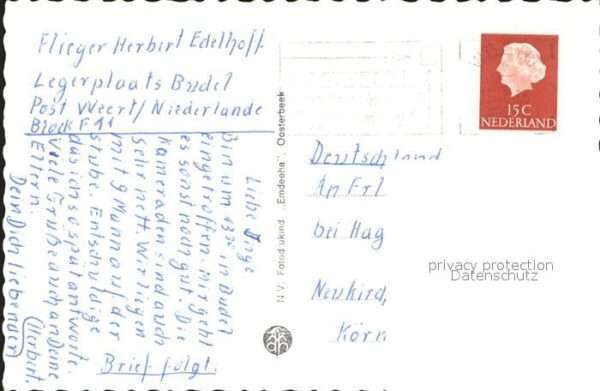 Flieger Herbert Edelhoff
Legerplaats Budel
Post Weert/Niederlande
Block F 11
Liebe Inge
Bin um 13 30 in Budel
eingetroffen. Mir geht
es sonst noch gut. Die
Kameraden sind auch
sehr nett. Wir liegen
mit 9 Mann auf der
stube. Entschuldige
das ich so spät antworte.
Viele Grüße auch an Deine
Eltern.
Dein Dich liebender
Herbert
Brief folgt.
N.V. Fotodrukind. „Emdeeha", Oosterbeek
15 C
NEDERLAND
Deutschland
An Frl
bei Hag
Neukird,
Körn
privacy protection
Datenschutz